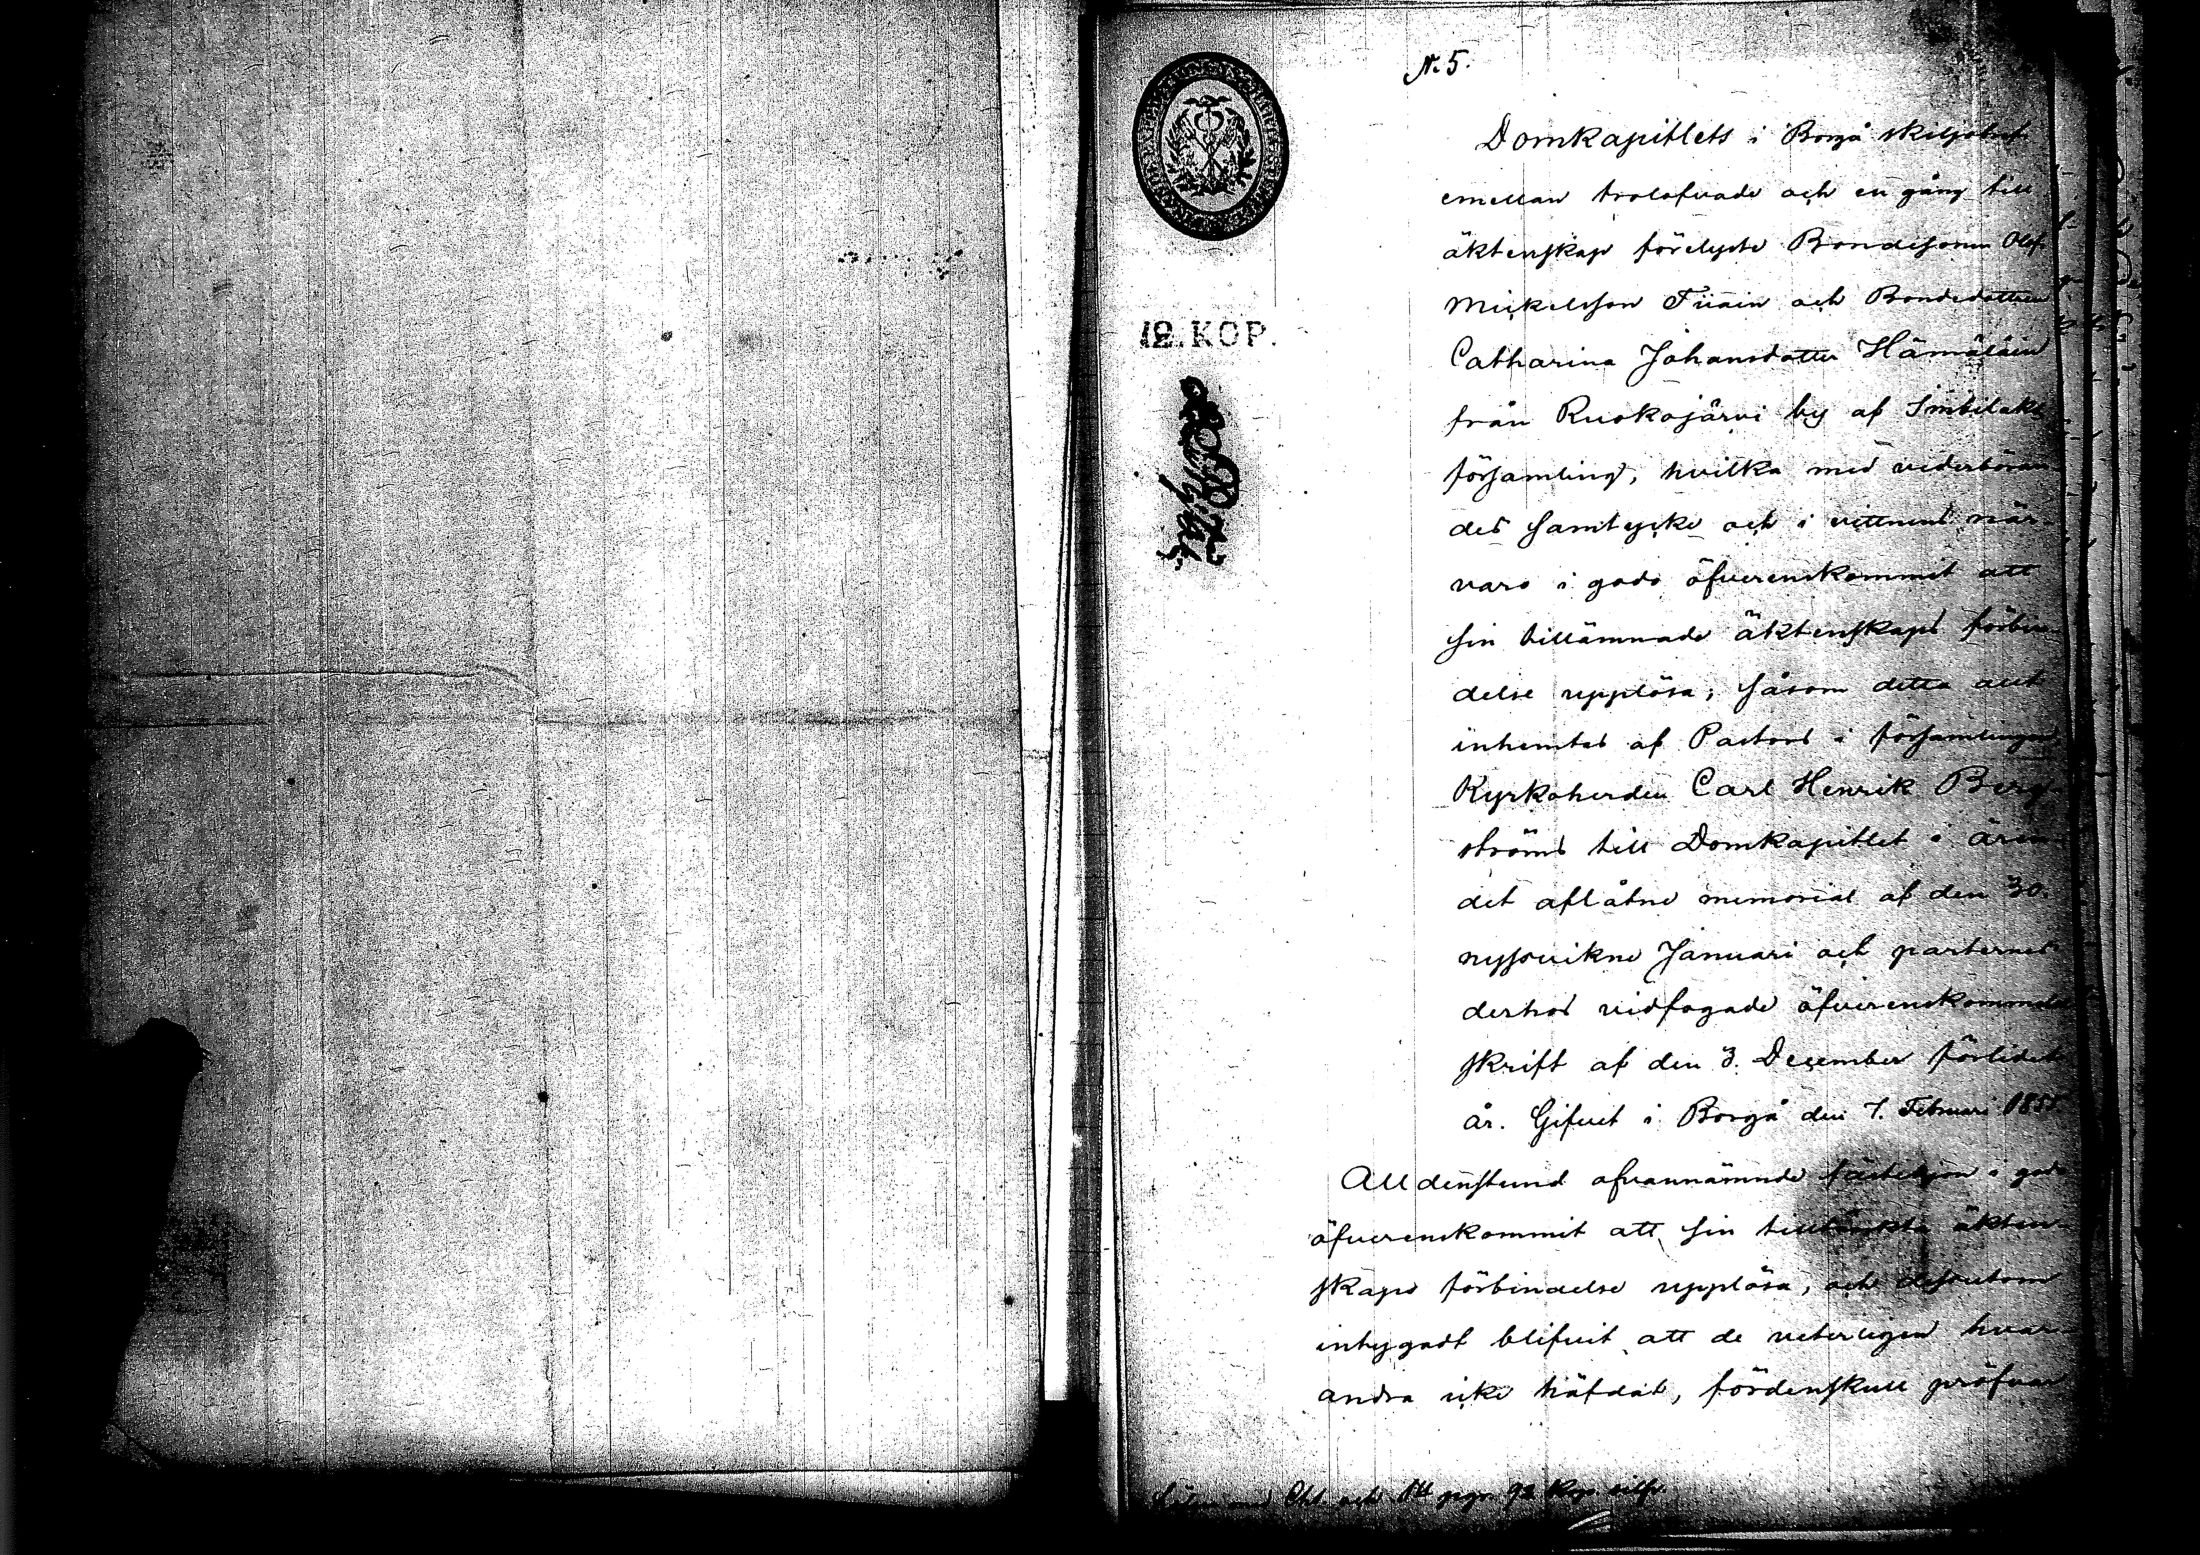 N. 5.
Domkapitlets i Borgå skiljobref
emellan trolofvade och en gång till
äktenskap förelyste Bondesonen Olof
Mickelsson Tiiain och Bondedottren
Catharina Johansdotter Hämäläin
från Ruokojärvi by af Imbilaks
församling, hvilka med vederböran-
des samtycke och i vittnens när-
varo i godo öfverenskommit att
sin tillämnade äktenskaps förbin-
delse upplösa; såsom detta allt
inhemtas af Pastors i församlingen
Kyrkoherden Carl Henrik Berg-
ströms till Domkapitlet i ären-
det aflåtne memorial af den 30.
nyssvikne Januari och parternes
derhos vidfogade öfverenskommelse
skrift af den 3. December förlidet
år. Gifvet i Borgå den 7. Februari 1855.
Alldenstund ofvannämnde fästehjon i godo
öfverenskommit att sin tilltänkta äkten-
skaps förbindelse upplösa, och dessutom
intygadt blifvit att de veterligen hvar-
andra icke häfdat, fördenskull pröfvar
12. KOP.
Lösen med Cht och pgr. 92 kop. silfr.